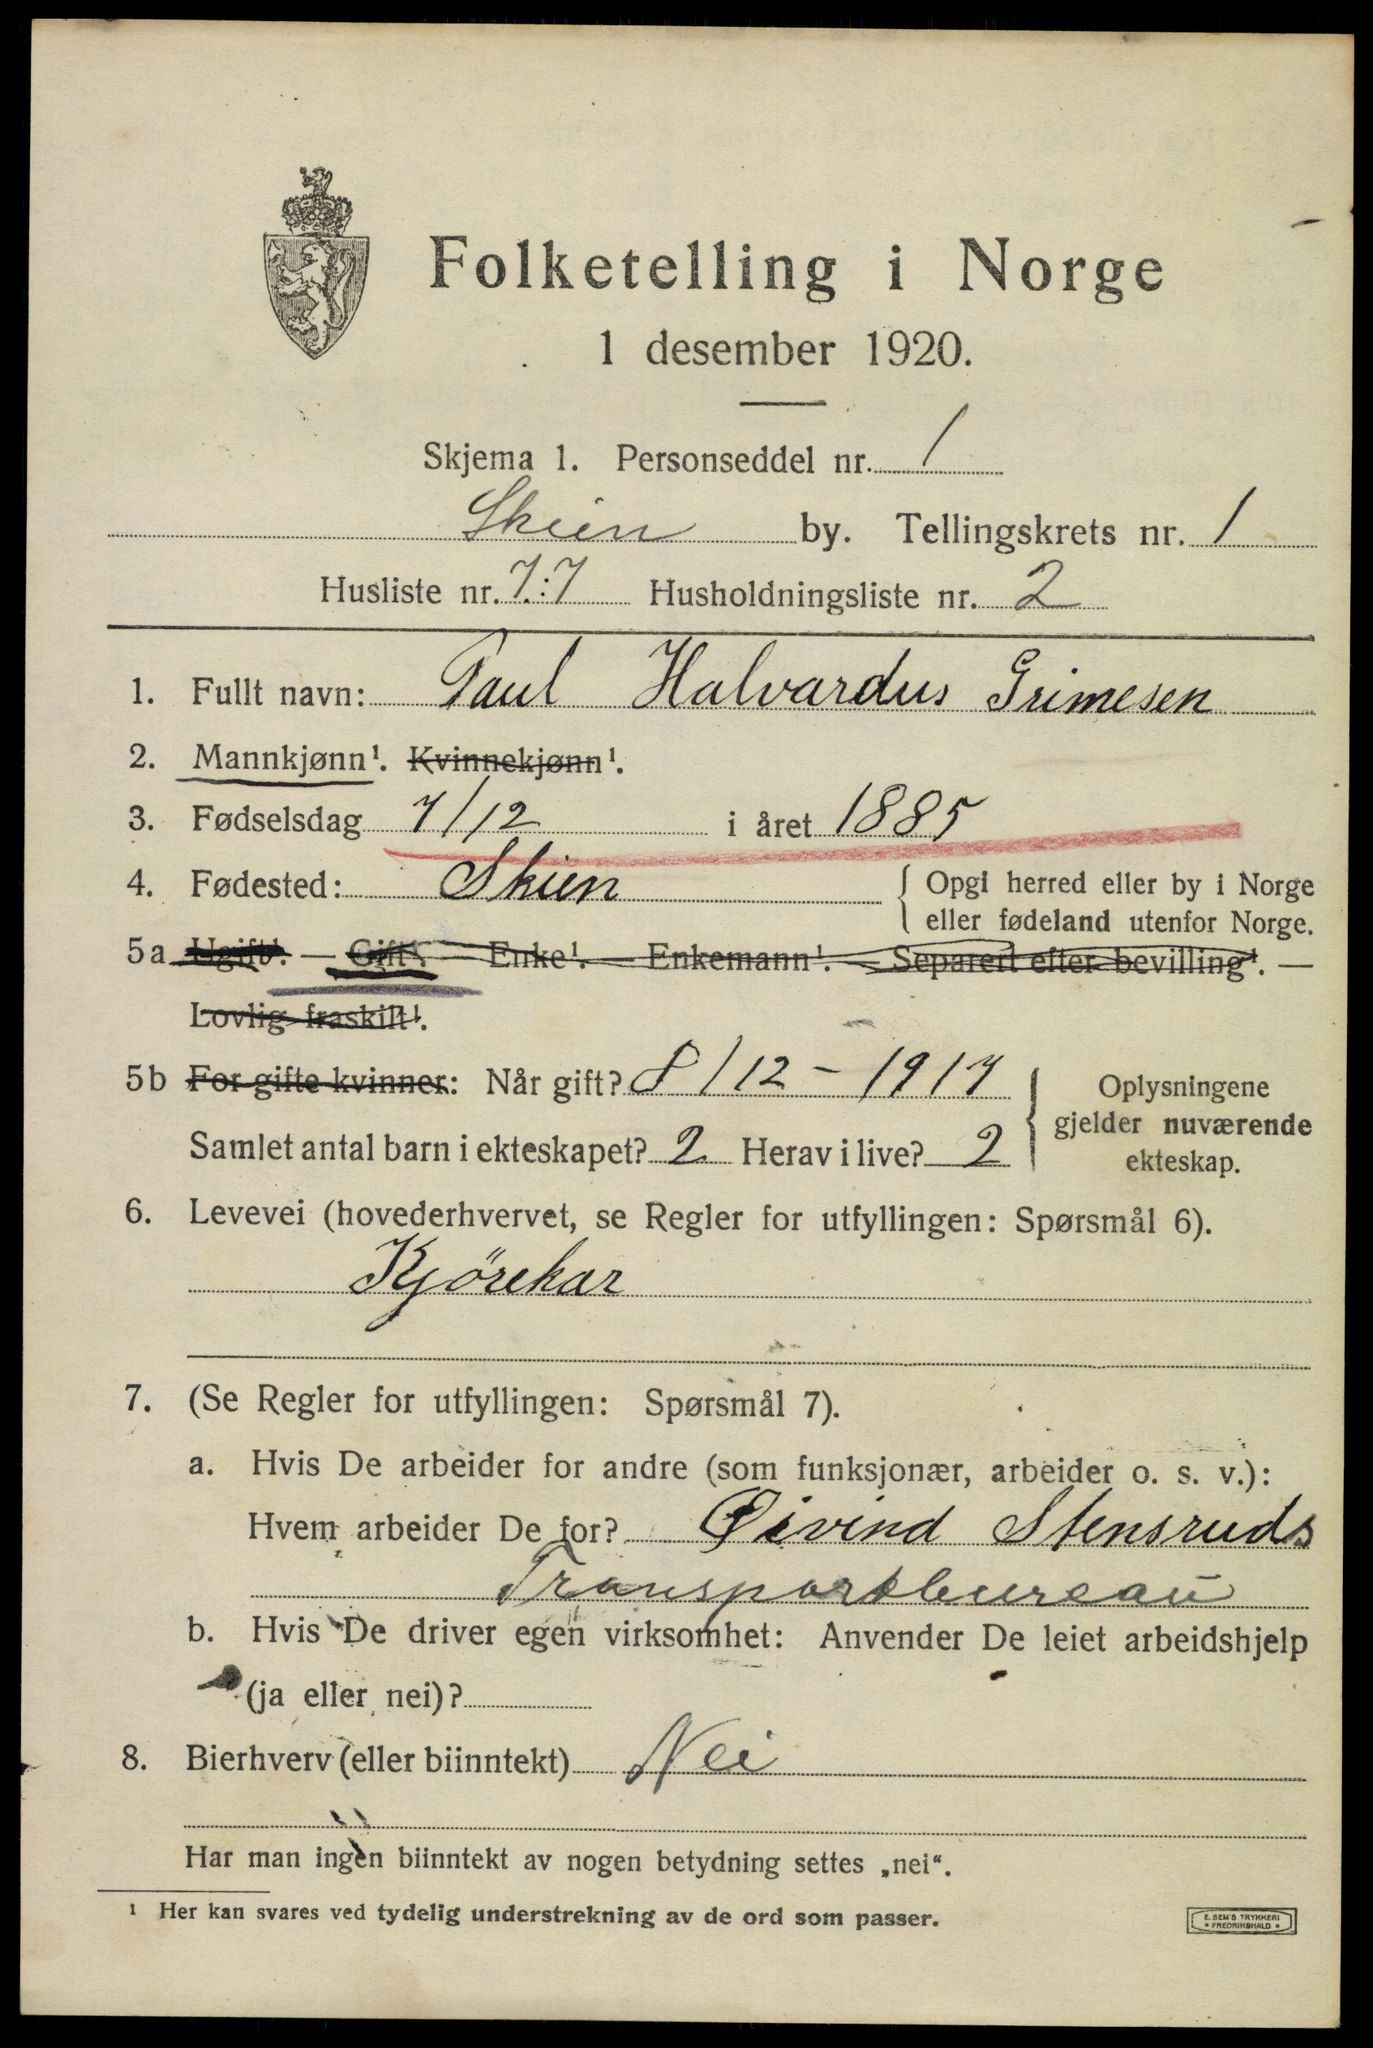 Folketelling i Norge
1 desember 1920.
Skjema 1. Personseddel nr. 1
Skien by. Tellingskrets nr. 1
Husliste nr. 77 Husholdningsliste nr. 2
1. Fullt navn: Paul Halvardus Grimesen
2. Mannkjønn¹. Kvinnekjønn¹.
3. Fødselsdag 7/12 i året 1885
4. Fødested: Skien { Opgi herred eller by i Norge
eller fødeland utenfor Norge.
5a Ugift¹. — Gift¹. — Enke¹. — Enkemann¹. — Separert efter bevilling¹. —
Lovlig fraskilt¹.
5b For gifte kvinner: Når gift? 8/12 - 1917 } Oplysningene
gjelder nuværende
Samlet antal barn i ekteskapet? 2 Herav i live? 2 ekteskap.
6. Levevei (hovederhvervet, se Regler for utfyllingen: Spørsmål 6).
Kjörekar
7. (Se Regler for utfyllingen: Spørsmål 7).
a. Hvis De arbeider for andre (som funksjonær, arbeider o. s. v.):
Hvem arbeider De for? Øivind Stensruds
Transportbureau
b. Hvis De driver egen virksomhet: Anvender De leiet arbeidshjelp
(ja eller nei)?
8. Bierhverv (eller biinntekt) Nei
Har man ingen biinntekt av nogen betydning settes „nei“.
¹ Her kan svares ved tydelig understrekning av de ord som passer.
E. SEM'S TRYKKERI
* FREDRIKSHALD *